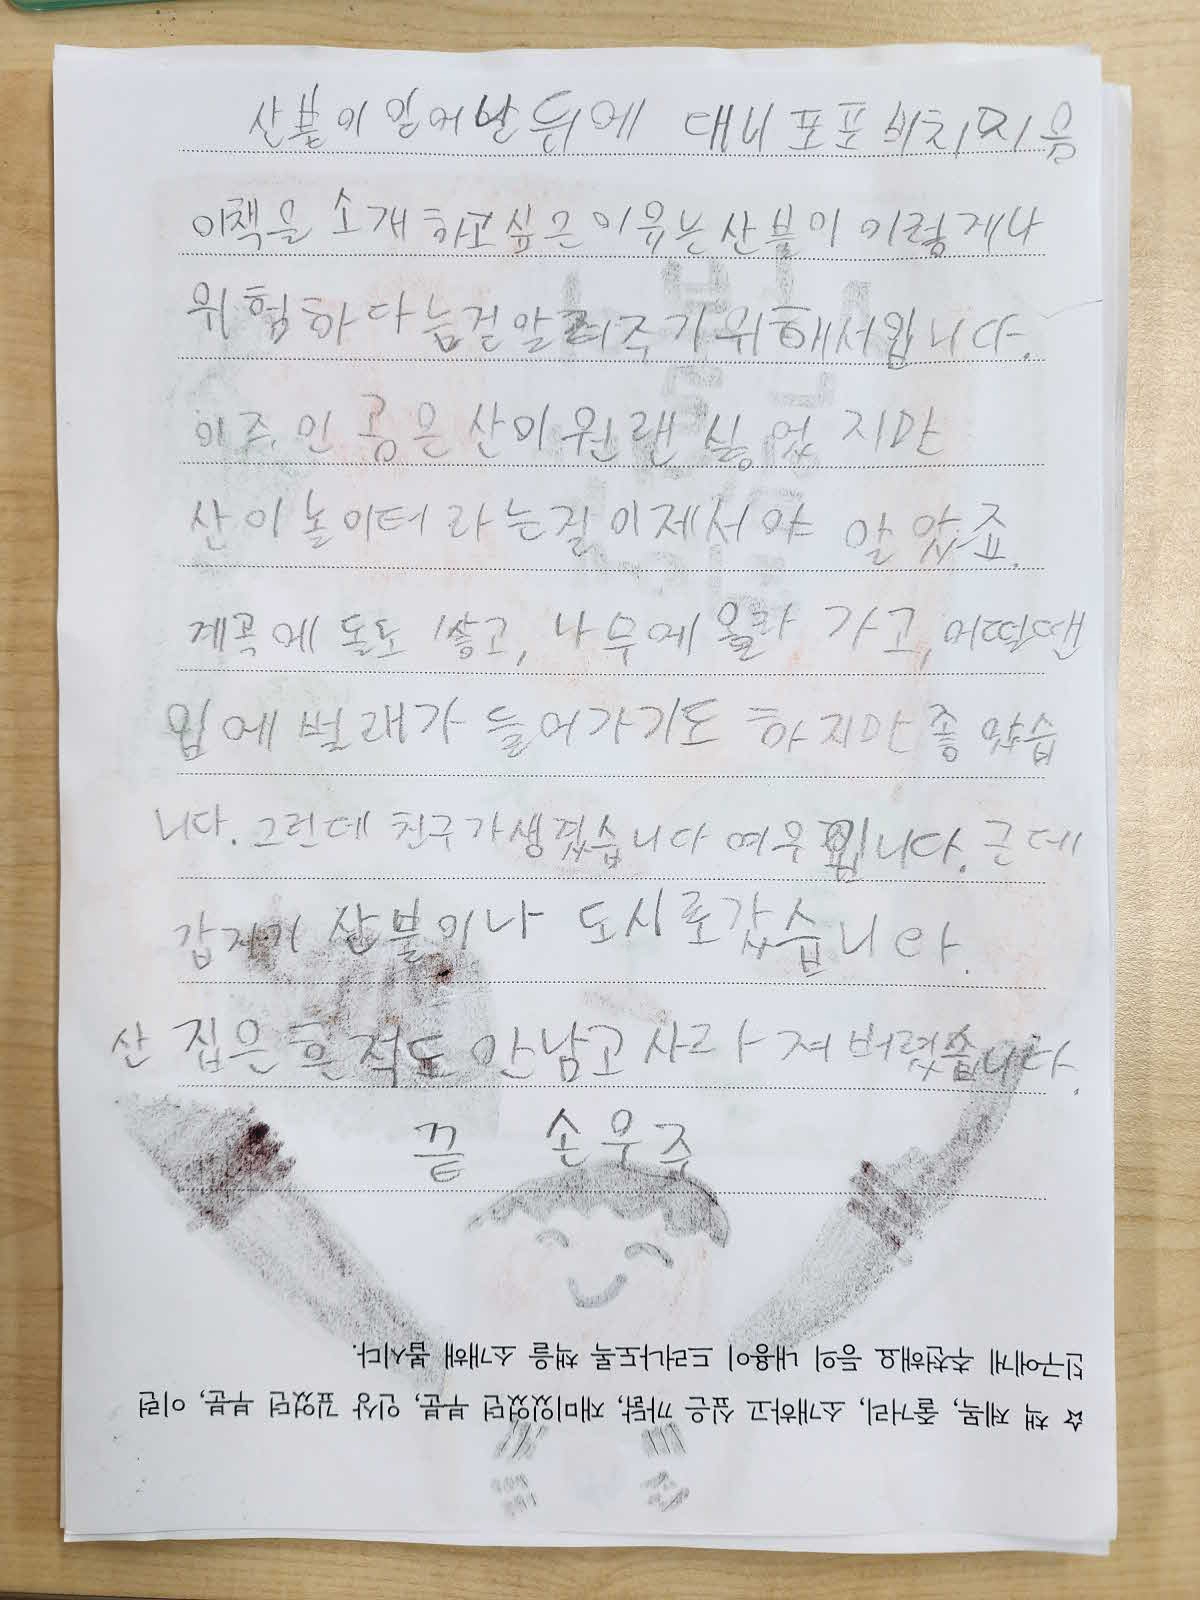 산불이 일어난 뒤에 대니 포포비치 지음
이책을 소개 하고 싶은 이유는 산불이 이렇게나
위험하다는걸 알려주기 위해서입니다.
이 주인공은 산이 원랜 싫었지만
산이 놀이터라는걸 이제서야 알았죠.
계곡에 돌도 쌓고, 나무에 올라 가고, 어떨땐
입에 벌래가 들어가기도 하지만 좋았습
니다. 그런데 친구가 생겼습니다 여우입니다. 근데
갑자기 산불이나 도시로갔습니다.
산 집은 흔적도 안남고 사라져 버렸습니다.
끝 손우주
☆ 책 제목, 줄거리, 소개하고 싶은 까닭, 재미있었던 부분, 인상 깊었던 부분, 이런
친구에게 추천해요 등의 내용이 드러나도록 책을 소개해 봅시다.